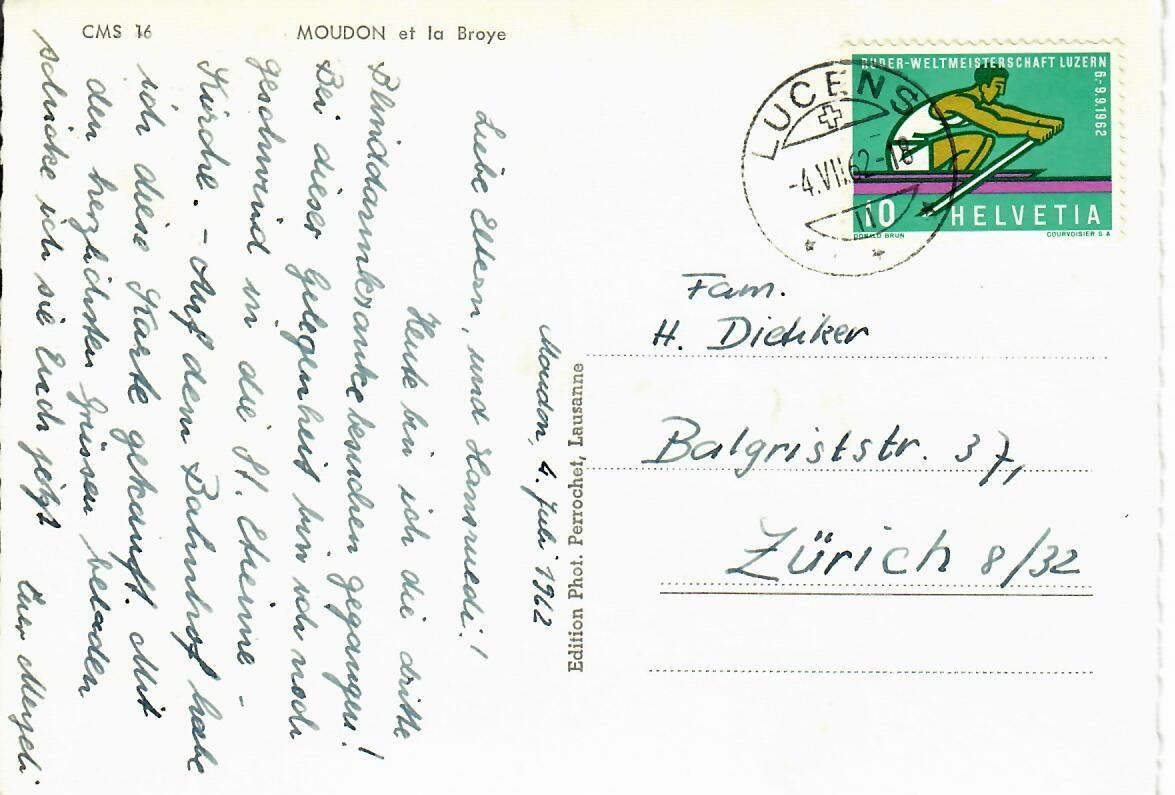 CMS 16
MOUDON et la Broye
Moudon, 4. Juli 1962
Liebe Eltern, und Hansruedi!
Heute bin ich die dritte
Blinddarmkranke besuchen gegangen!
Bei dieser Gelegenheit bin ich noch
geschwind in die St. Etienne -
Kirche. - Auf dem Bahnhof habe
ich diese Karte gekauft. Mit
den herzlichsten Grüssen beladen
schicke ich sie Euch jetzt
Euer
Edition Phot. Perrochet, Lausanne
RUDER-WELTMEISTERSCHAFT LUZERN
6.-9.9.1962
10
HELVETIA
DONALD BRUN
COURVOISIER S A
LUCENS
-4.VII.62-18
Fam.
H. Dietiker
Balgriststr. 37,
Zürich 8/32